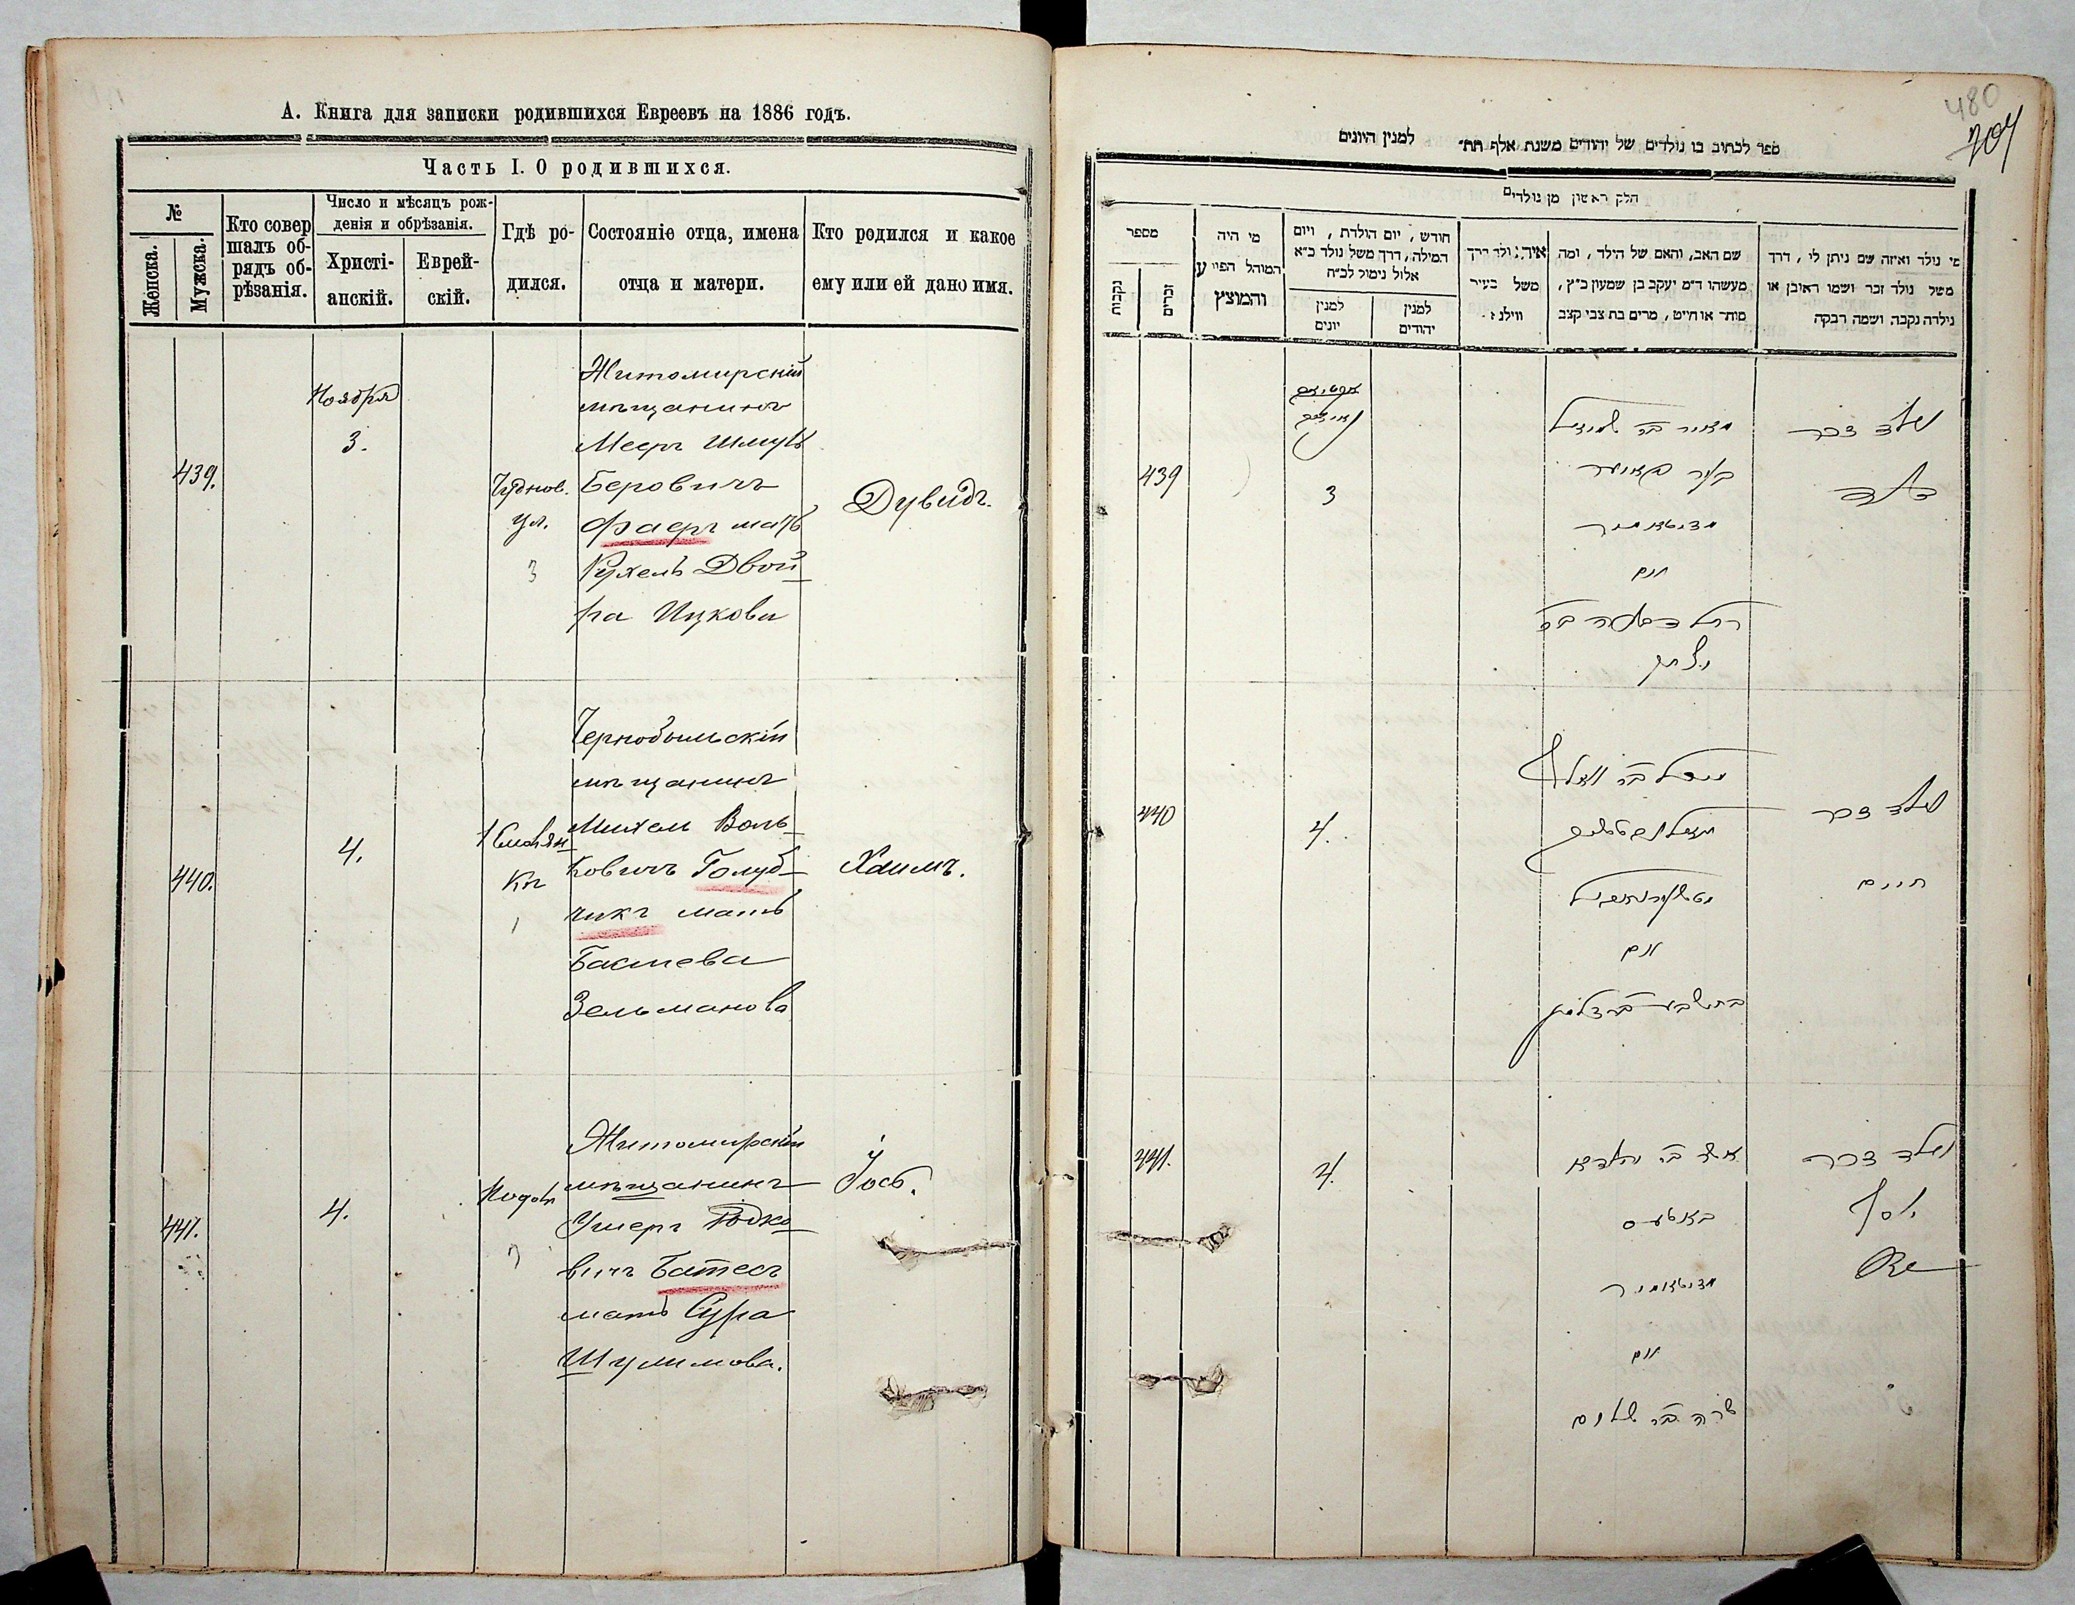 А. Книга для записки родившихся Евреевъ на 1886 годъ.
Часть I. О родившихся.
№
Женска.
Мужска.
Кто совер
шалъ об-
рядъ об-
рѣзанія.
Число и мѣсяцъ рож-
денія и обрѣзанія.
Христі-
анскій.
Еврей-
скій.
Гдѣ ро-
дился.
Состояніе отца, имена
отца и матери.
Кто родился и какое
ему или ей дано имя.
439.
Ноября
3.
Чуднов.
ул.
Житомирскій
мѣщанинъ
Мееръ Шмуль
Беровичъ
Фаеръ мать
Рухель Двой
ра Ицкова
Дувидъ.
440.
4.
Чернобыльскій
мѣщанинъ
Михель Воль-
ковичъ Голуб-
чикъ мать
Басшева
Зельманова
Хаимъ.
441.
4.
Житомирскій
мѣщанинъ
Ушеръ
вичъ Батесъ
мать Сура
Шулимова.
Іосъ.
480
704
ספר לכתוב בו נולדים של יהודים משנת אלף תת״ למנין היונים
חלק ראשון מן נולדים
מספר
נקבות
זכרים
מי היה
המוהל הפויע
והמוצץ
חודש, יום הולדת, ויום
המילה, דרך משל נולד כ״א
אלול נימול לכ״ח
למנין
יונים
למנין
יהודים
איה נולד דרך
משל בעיר
ווילנא
שם האב, והאם של הילד, ומה
מעשהו ד״מ יעקב בן שמעון כ״ץ,
סוחר או חייט, מרים בת צבי קצב
מי נולד ואיזה שם ניתן לו, דרך
משל נולד זכר ושמו ראובן או
נילדה נקבה ושמה רבקה
439
3
מאיר בר שמואל
בער פאיער
זיטאמיר
ואם
רחל דבורה בר
יצחק
נולד זכר
דוד
440
4.
מיכל בר וואלף
ואם
בת שבע בר זלמן
נולד זכר
חיים
441.
4.
באטעס
זיטאמיר
ואם
שרה בר שלום
נולד זכר
יוסף